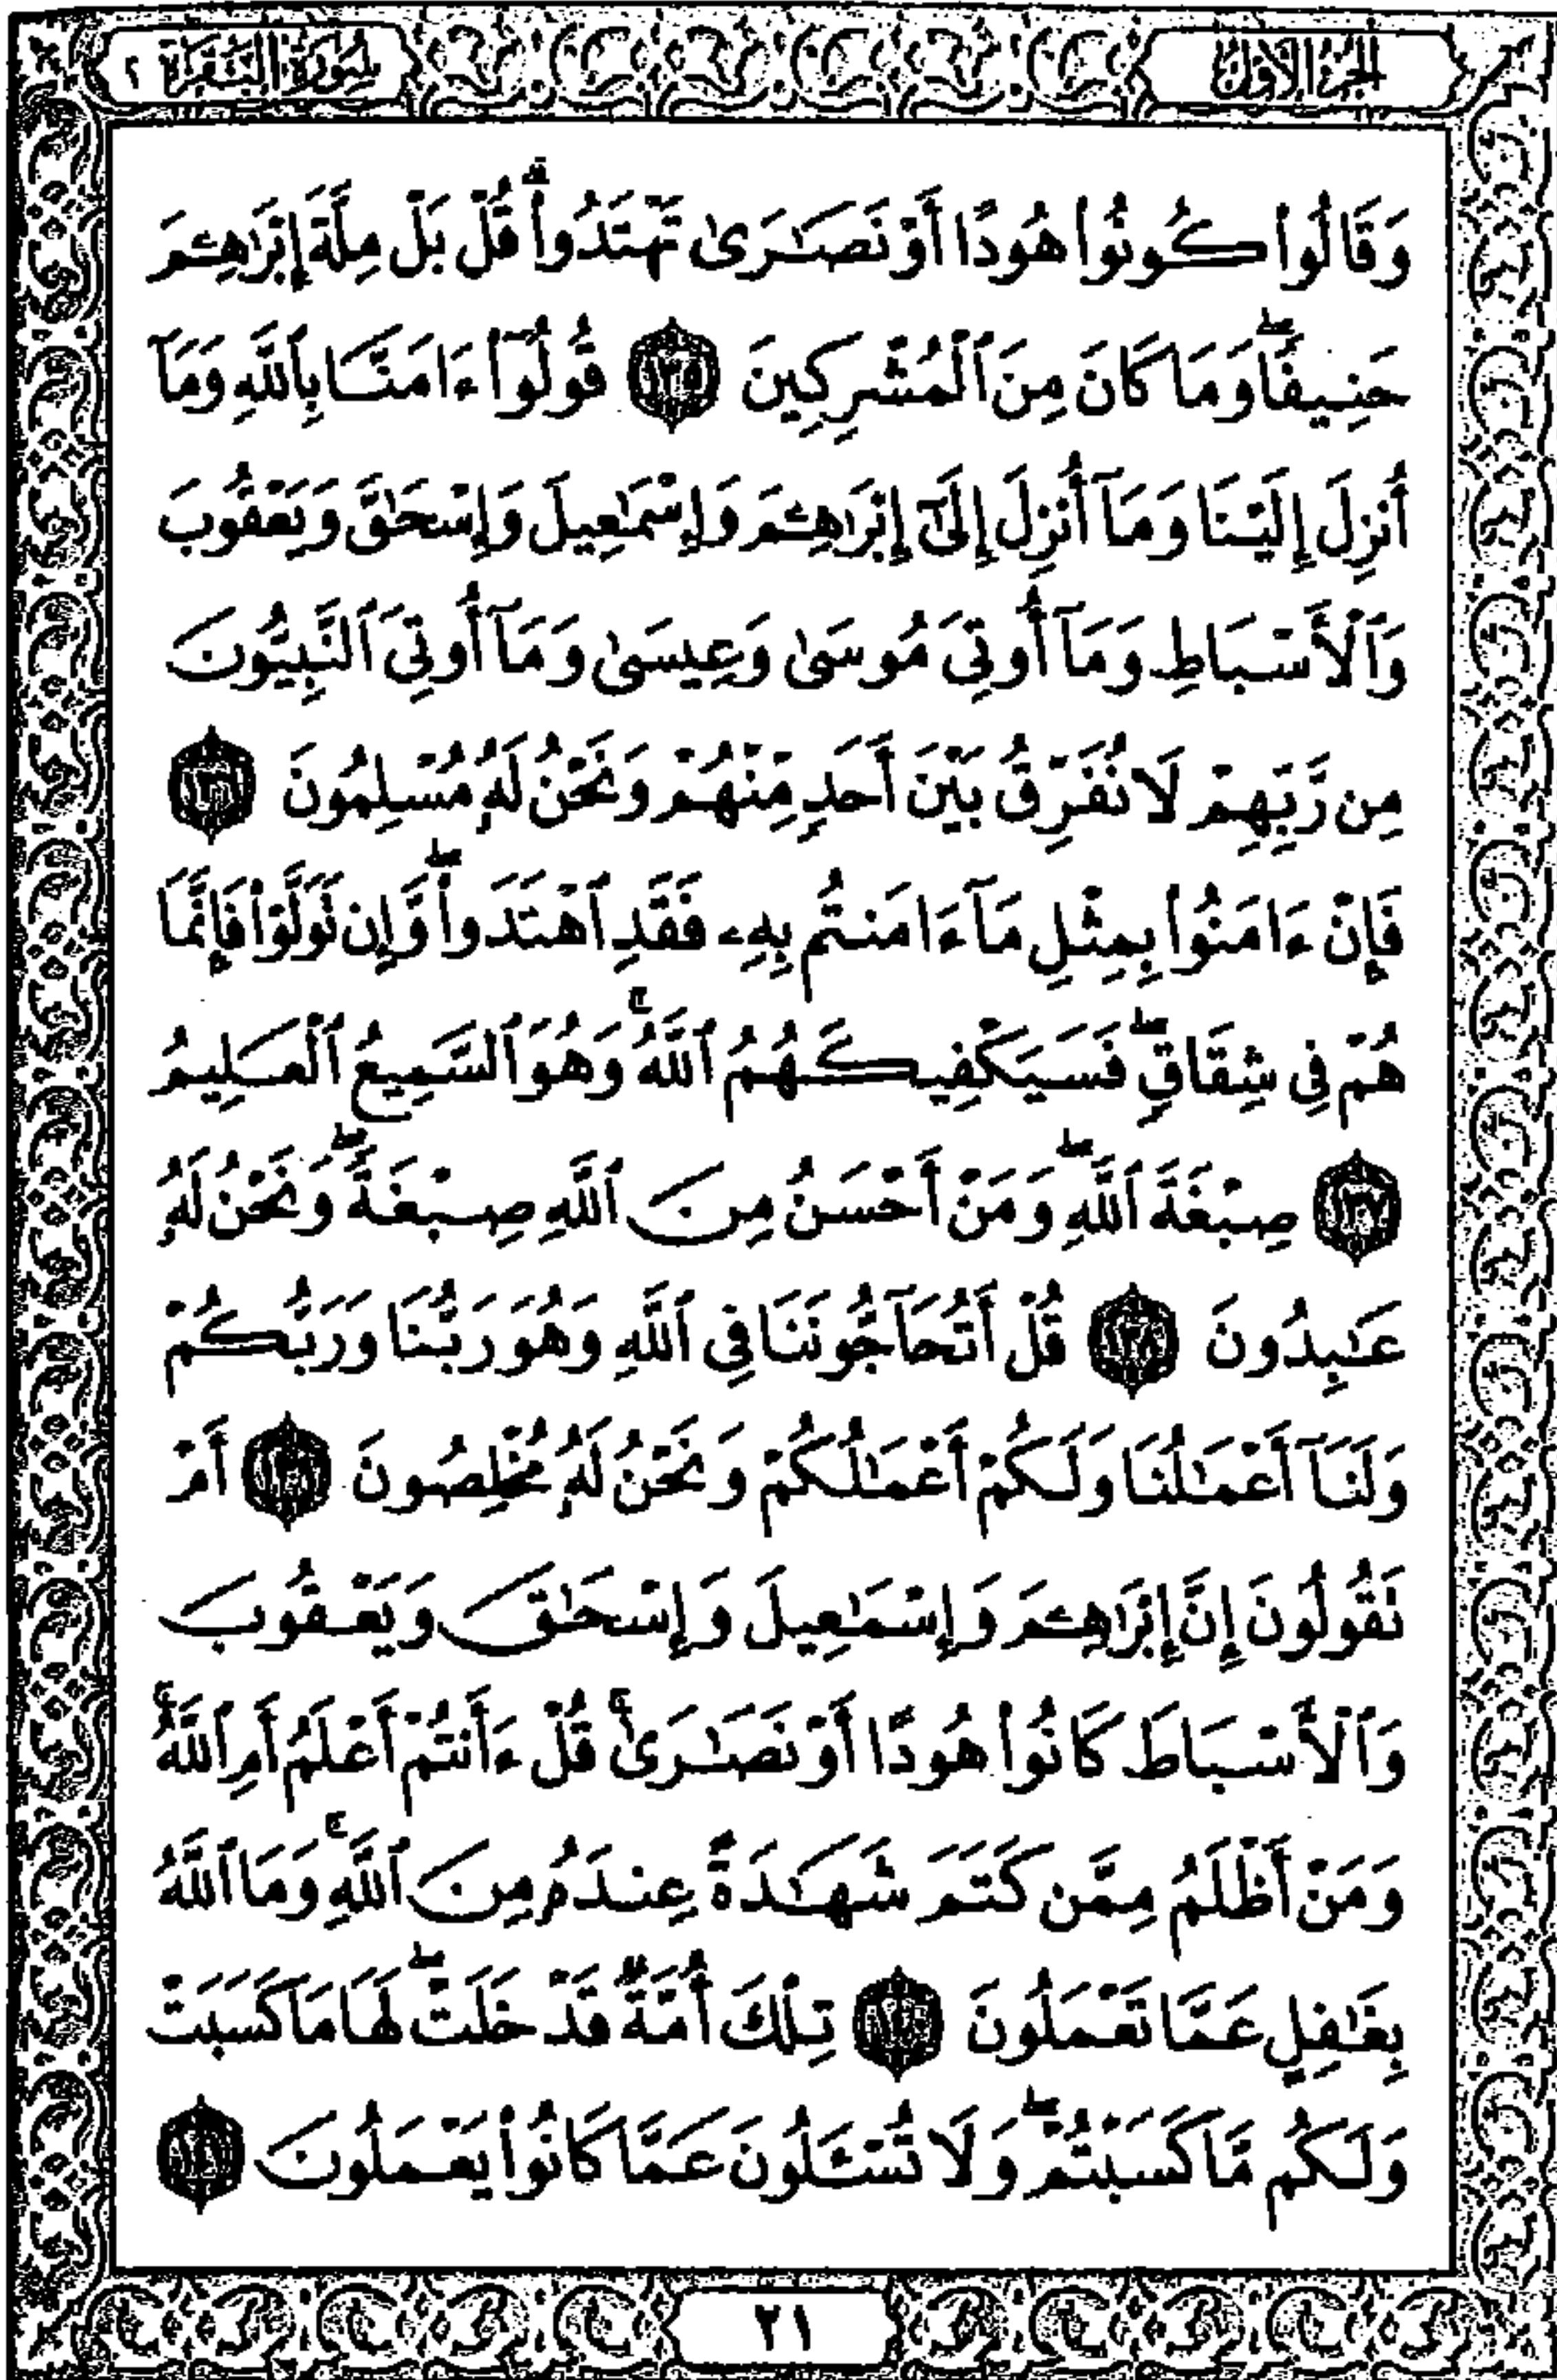 الجزء الأول
سورة البقرة ٢
وَقَالُوا۟ كُونُوا۟ هُودًا أَوْ نَصَـٰرَىٰ تَهْتَدُوا۟ ۗ قُلْ بَلْ مِلَّةَ إِبْرَٰهِـۧمَ
حَنِيفًا ۖ وَمَا كَانَ مِنَ ٱلْمُشْرِكِينَ ١٣٥ قُولُوٓا۟ ءَامَنَّا بِٱللَّهِ وَمَآ
أُنزِلَ إِلَيْنَا وَمَآ أُنزِلَ إِلَىٰٓ إِبْرَٰهِـۧمَ وَإِسْمَـٰعِيلَ وَإِسْحَـٰقَ وَيَعْقُوبَ
وَٱلْأَسْبَاطِ وَمَآ أُوتِىَ مُوسَىٰ وَعِيسَىٰ وَمَآ أُوتِىَ ٱلنَّبِيُّونَ
مِن رَّبِّهِمْ لَا نُفَرِّقُ بَيْنَ أَحَدٍ مِّنْهُمْ وَنَحْنُ لَهُۥ مُسْلِمُونَ ١٣٦
فَإِنْ ءَامَنُوا۟ بِمِثْلِ مَآ ءَامَنتُم بِهِۦ فَقَدِ ٱهْتَدَوا۟ ۖ وَّإِن تَوَلَّوْا۟ فَإِنَّمَا
هُمْ فِى شِقَاقٍ ۖ فَسَيَكْفِيكَهُمُ ٱللَّهُ ۚ وَهُوَ ٱلسَّمِيعُ ٱلْعَلِيمُ
١٣٧ صِبْغَةَ ٱللَّهِ ۖ وَمَنْ أَحْسَنُ مِنَ ٱللَّهِ صِبْغَةً ۖ وَنَحْنُ لَهُۥ
عَـٰبِدُونَ ١٣٨ قُلْ أَتُحَآجُّونَنَا فِى ٱللَّهِ وَهُوَ رَبُّنَا وَرَبُّكُمْ
وَلَنَآ أَعْمَـٰلُنَا وَلَكُمْ أَعْمَـٰلُكُمْ وَنَحْنُ لَهُۥ مُخْلِصُونَ ١٣٩ أَمْ
نَقُولُونَ إِنَّ إِبْرَٰهِـۧمَ وَإِسْمَـٰعِيلَ وَإِسْحَـٰقَ وَيَعْقُوبَ
وَٱلْأَسْبَاطَ كَانُوا۟ هُودًا أَوْ نَصَـٰرَىٰ ۗ قُلْ ءَأَنتُمْ أَعْلَمُ أَمِ ٱللَّهُ ۗ
وَمَنْ أَظْلَمُ مِمَّن كَتَمَ شَهَـٰدَةً عِندَهُۥ مِنَ ٱللَّهِ ۗ وَمَا ٱللَّهُ
بِغَـٰفِلٍ عَمَّا تَعْمَلُونَ ١٤٠ تِلْكَ أُمَّةٌ قَدْ خَلَتْ ۖ لَهَا مَا كَسَبَتْ
وَلَكُم مَّا كَسَبْتُمْ ۖ وَلَا تُسْـَٔلُونَ عَمَّا كَانُوا۟ يَعْمَلُونَ ١٤١
٢١